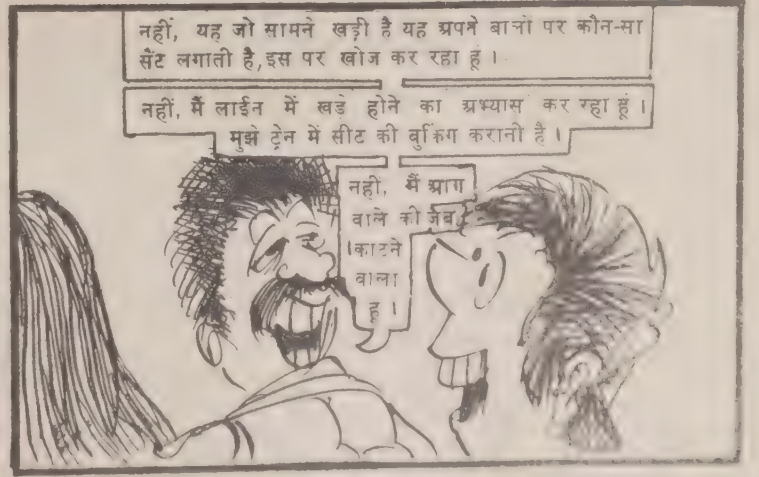 नहीं, यह जो सामने खड़ी है यह अपने बालों पर कौन-सा
सैंट लगाती है, इस पर खोज कर रहा हूं ।
नहीं, मैं लाईन में खड़े होने का अभ्यास कर रहा हूं ।
मुझे ट्रेन में सीट की बुकिंग करानी है ।
नहीं, मैं आग
वाले की जेब
काटने
वाला
हूं ।